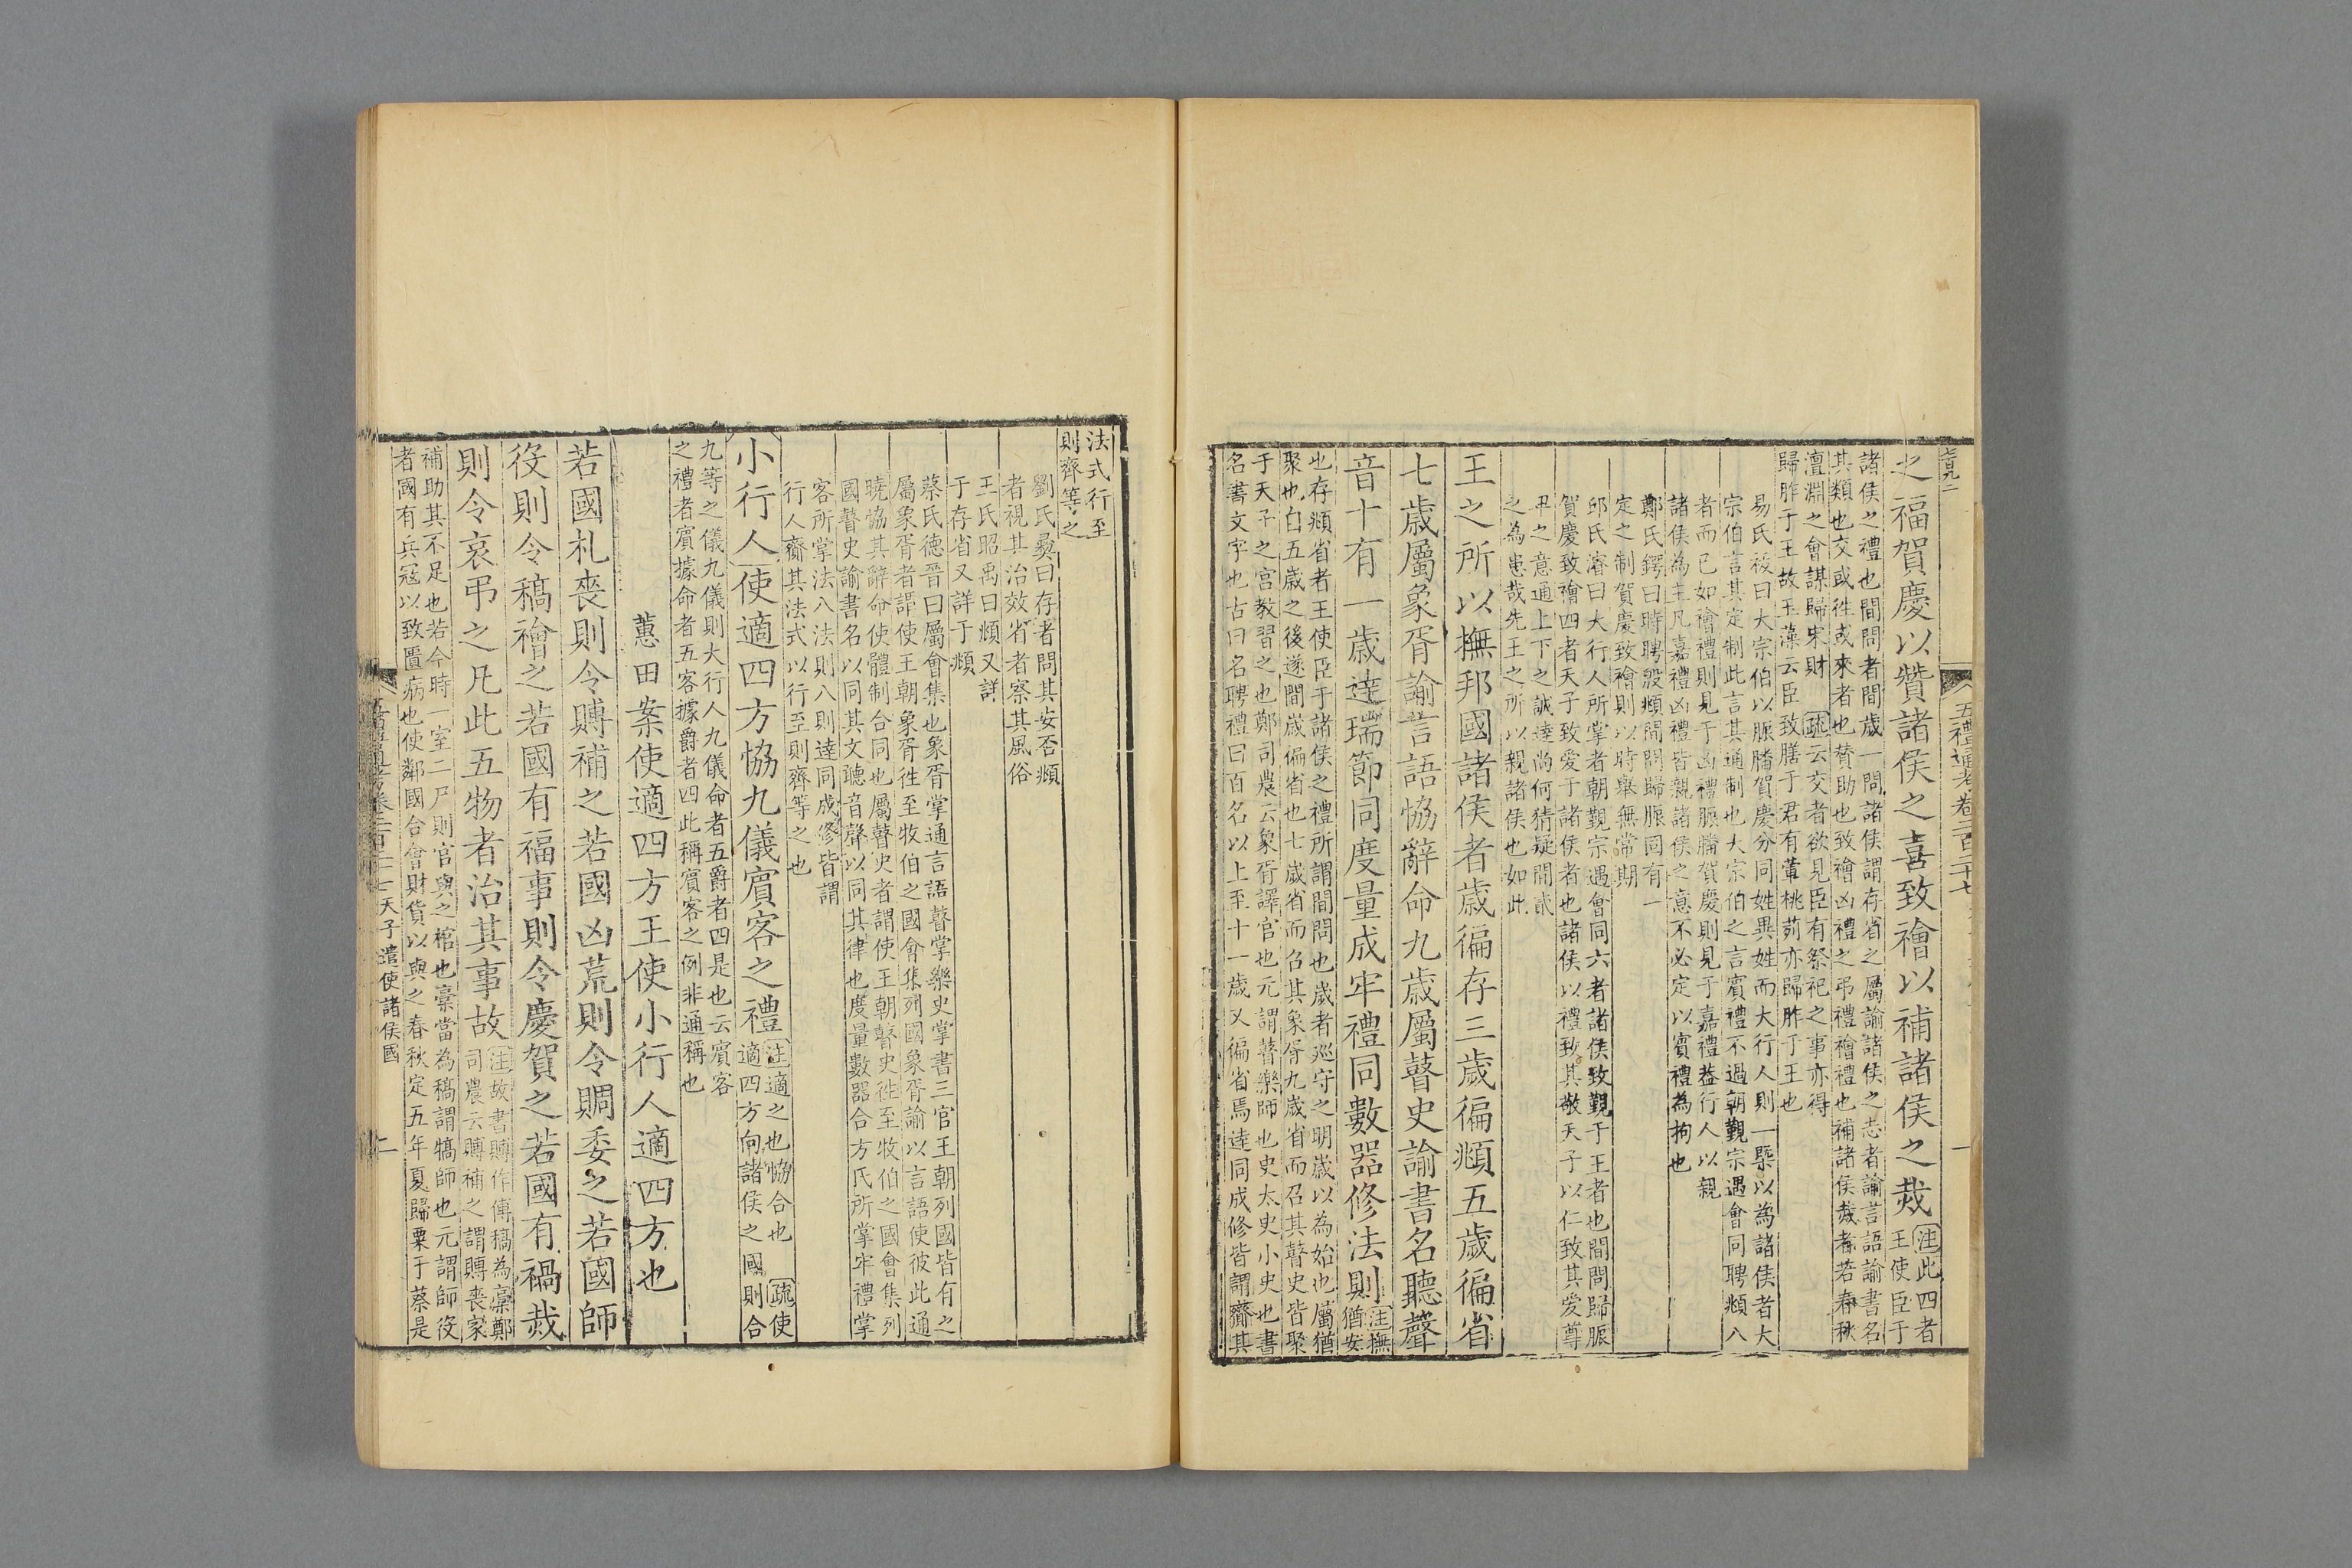 之福賀慶以贊諸侯之喜致禬以補諸侯之烖
注此四者
王使臣于
諸侯之禮也間問者間歲一問諸侯謂存省之屬諭諸侯之志者諭言語諭書名
其類也交或徃或來者也贊助也致禬凶禮之弔禮禬禮也補諸侯烖者若春秋
澶淵之會謀歸宋財
疏云交者欲見臣有祭祀之事亦得
歸胙于王故玉藻云臣致膳于君有葷桃茢亦歸胙于王也
易氏祓曰大宗伯以脤膰賀慶分同姓異姓而大行人則一槩以為諸侯者大
宗伯言其定制此言其通制也大宗伯之言賓禮不過朝覲宗遇會同聘頫八
者而已如禬禮則見于凶禮脤膰賀慶則見于嘉禮葢行人以親
諸侯為主凡嘉禮凶禮皆親諸侯之意不必定以賓禮為拘也
鄭氏鍔曰時聘殷頫間問歸脤同有一
定之制賀慶致禬則以時舉無常期
邱氏濬曰大行人所掌者朝覲宗遇會同六者諸侯致覲于王者也間問歸脤
賀慶致禬四者天子致愛于諸侯者也諸侯以禮致其敬天子以仁致其愛尊
卑之意通上下之誠達尚何猜疑間貳
之為患哉先王之所以親諸侯也如此
王之所以撫邦國諸侯者歲徧存三歲徧頫五歲徧省
七歲屬象胥諭言語恊辭命九歲屬瞽史諭書名聽聲
音十有一歲達瑞節同度量成牢禮同數器修法則
注撫
猶安
也存頫省者王使臣于諸侯之禮所謂間問也歲者巡守之明歲以為始也屬猶
聚也自五歲之後遂間歲徧省也七歲省而召其象胥九歲省而召其瞽史皆聚
于天子之宫教習之也鄭司農云象胥譯官也元謂瞽樂師也史太史小史也書
名書文字也古曰名聘禮曰百名以上至十一歲又徧省焉達同成修皆謂齎其
法式行至
則齊等之
劉氏彝曰存者問其安否頫
者視其治效省者察其風俗
王氏昭禹曰頫又詳
于存省又詳于頫
蔡氏德晋曰屬會集也象胥掌通言語瞽掌樂史掌書三官王朝列國皆有之
屬象胥者謂使王朝象胥徃至牧伯之國會集列國象胥諭以言語使彼此通
曉恊其辭命使體制合同也屬瞽史者謂使王朝瞽史徃至牧伯之國會集列
國瞽史諭書名以同其文聽音聲以同其律也度量數器合方氏所掌牢禮掌
客所掌法八法則八則達同成修皆謂
行人齎其法式以行至則齊等之也
小行人使適四方恊九儀賓客之禮
注適之也恊合也
適四方向諸侯之國
疏使
則合
九等之儀九儀則大行人九儀命者五爵者四是也云賓客
之禮者賓據命者五客據爵者四此稱賓客之例非通稱也
蕙田案使適四方王使小行人適四方也
若國札喪則令賻補之若國凶荒則令賙委之若國師
役則令槁禬之若國有福事則令慶賀之若國有禍烖
則令哀弔之凡此五物者治其事故
注故書賻作傅稿為稾鄭
司農云賻補之謂賻喪家
補助其不足也若今時一室二尸則官與之棺也稾當為槁謂犒師也元謂師役
者國有兵寇以致匱病也使鄰國合會財貨以與之春秋定五年夏歸粟于蔡是
五禮通考卷二百二十七天子遣使諸侯國
二